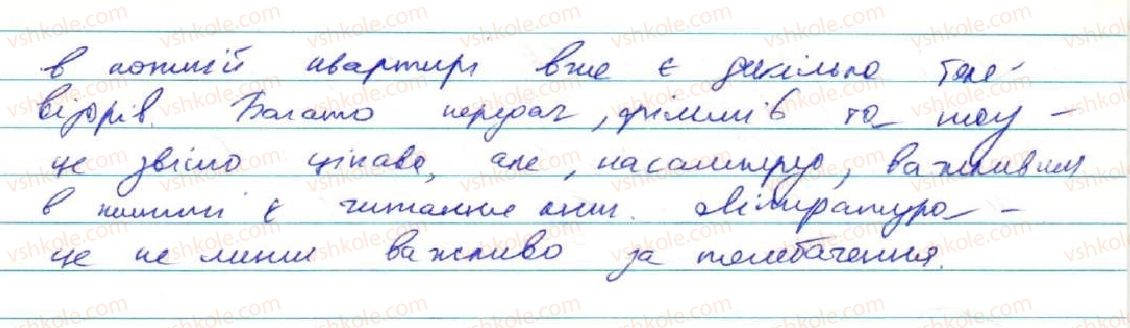 в кожній квартирі вже є декілька теле-
візорів. Багато передач, фільмів та шоу –
це звісно цікаво, але, насамперед, важливим
в житті є читання книг. Література –
це не менш важливо за телебачення.